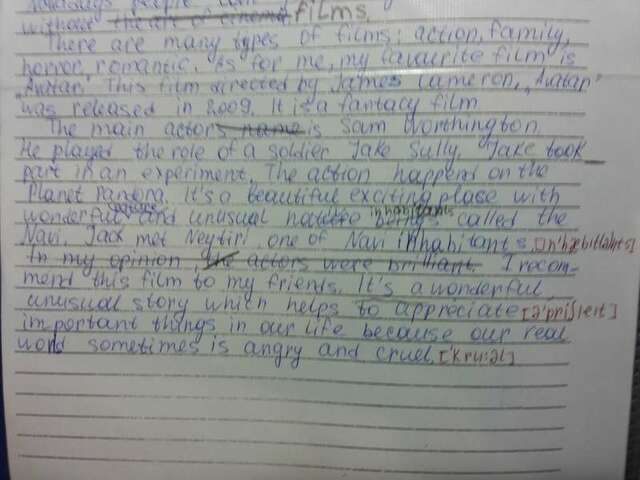 Nowadays people
without the art of cinema films.
There are many types of films: action, family,
horror, romantic. As for me, my favourite film is
"Avatar". This film directed by James Cameron, "Avatar"
was released in 2009. It is a fantacy film
The main actors name is Sam Worthington.
He played the role of a soldier Jake Sully. Jake took
part in an experiment. The action happens on the
Planet Pantora. It's a beautiful exciting place with
wonderful and unusual inhabitants called the
Navi. Jack met Neytiri one of Navi inhabitants
In my opinion, the actors were brilliant. I recom-
mend this film to my friends. It's a wonderful
unusual story which helps to appreciate
important things in our life because our real
world sometimes is angry and cruel. ['kru:əl]